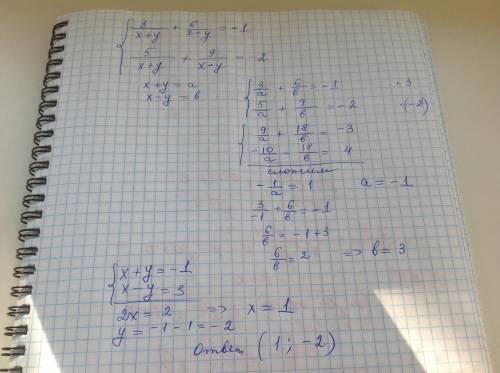 { 3/(x+y) + 6/(x-y) = -1
5/(x+y) + 9/(x-y) = -2
x+y = a
x-y = в
{ 3/a + 6/в = -1 · 3
5/a + 9/в = -2 ·(-2)
{ 9/a + 18/в = -3
-10/a - 18/в = 4
сложим
-1/a = 1 a = -1
3/-1 + 6/в = -1
6/в = -1+3
6/в = 2 => в = 3
{ x+y = -1
x-y = 3
2x = 2 => x = 1
y = -1-1 = -2
Ответ (1; -2)